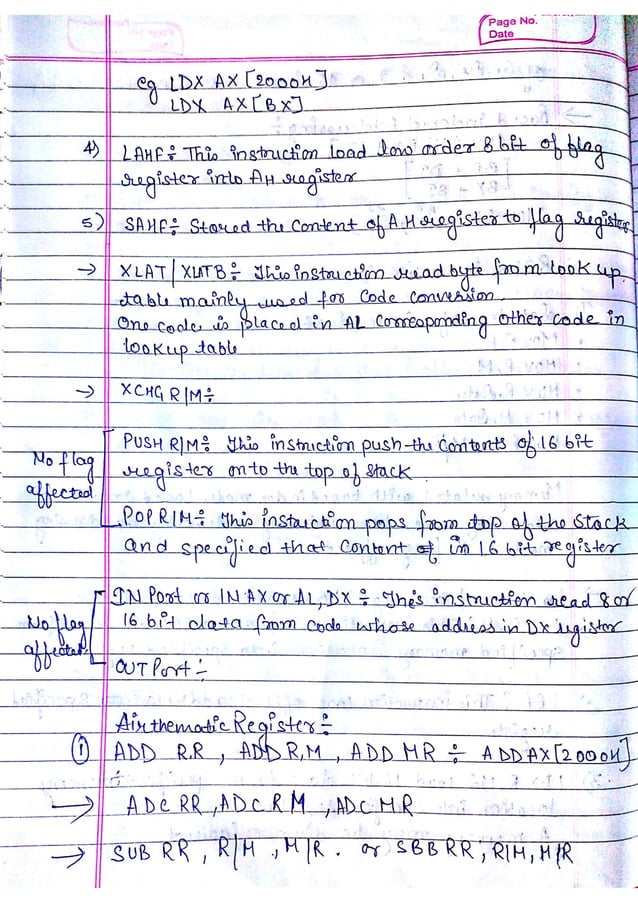 Page No.
Date
eg LDX AX [2000H]
LDX AX [BX]
4) LAHF÷ This instruction load low order 8 bit of flag
register into AH register
5) SAHF÷ Stored the content of A.H register to flag register
→ XLAT/XLATB÷ This instruction read byte from look up
table mainly used for code conversion.
One code is placed in AL corresponding other code in
lookup table
→ XCHG R/M÷
PUSH R/M÷ This instruction push the contents of 16 bit
register on to the top of stack
No flag
affected
POP R/M÷ This instruction pops from top of the stack
and specified that content of in 16 bit register
IN Port or IN AX or AL, DX ÷ This instruction read 8 or
16 bit data from code whose address in DX register
No flag
affected
OUT Port÷
Airthematic Register÷
① ADD R.R , ADD R,M , ADD MR ÷ ADD AX [2000H]
÷
→ ADC RR , ADC R M , ADC M R
→ SUB RR , R/M , M/R . or SBB RR , R/M, M/R